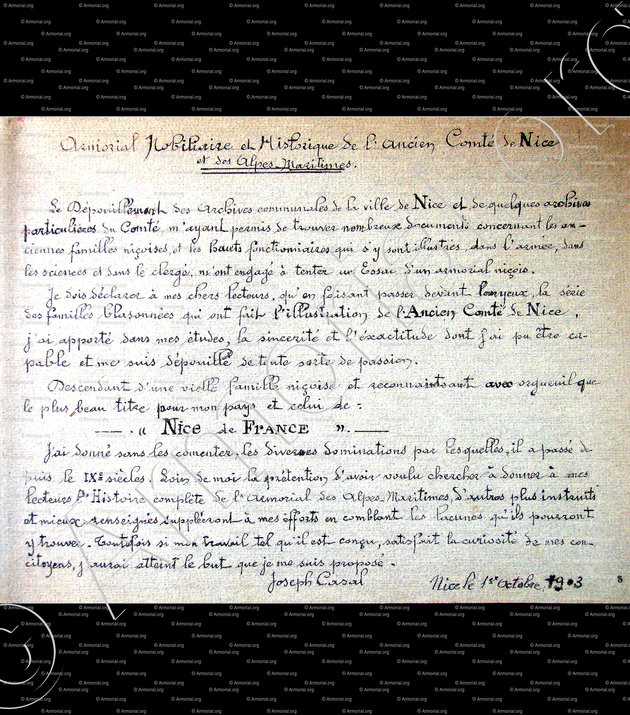 Armorial Nobiliaire et Historique de l'Ancien Comté de Nice
et des Alpes-Maritimes.
Le Dépouillement des Archives communales de la ville de Nice et de quelques archives
particulières du Comté, m'ayant permis de trouver nombreux documents concernant les an-
ciennes familles niçoises, et les hauts fonctionnaires qui s'y sont illustrés dans l'armée, dans
les sciences et dans le clergé, m'ont engagé à tenter un Essai d'un armorial niçois.
Je dois déclarer à mes chers lecteurs, qu'en faisant passer devant leurs yeux, la série
des familles blasonnées qui ont fait l'illustration de l'Ancien Comté de Nice,
j'ai apporté dans mes études, la sincérité et l'éxactitude dont j'ai pu être ca-
pable et me suis dépouillé de toute sorte de passion.
Descendant d'une vielle famille niçoise et reconnaissant avec orgueuil que
le plus beau titre pour mon pays et celui de :
—— . " Nice de FRANCE ". ——
J'ai donné sans les comenter, les diverses dominations par lesquelles, il a passé de
puis le IXe siècles. Loin de moi la prétention d'avoir voulu chercher à donner à mes
lecteurs l'Histoire complète de l'Armorial des Alpes-Maritimes, d'autres plus instruits
et mieux renseignés suppléeront à mes efforts en comblant les lacunes qu'ils pourront
y trouver. Toutefois si mon travail tel qu'il est conçu, satisfait la curiosité de mes con-
citoyens, j'aurai atteint le but que je me suis proposé.
Joseph Casal Nice le 1er octobre, 1903
© Armorial.org